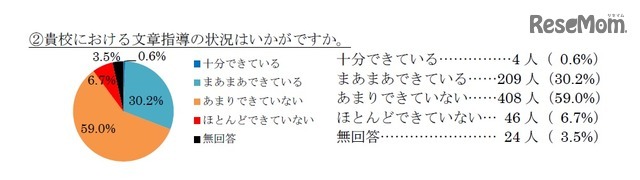 ReseMom
リセマム
②貴校における文章指導の状況はいかがですか。
3.5%
0.6%
6.7%
30.2%
59.0%
十分できている
まあまあできている
あまりできていない
ほとんどできていない
無回答
十分できている……………4人（ 0.6%）
まあまあできている……209人（30.2%）
あまりできていない……408人（59.0%）
ほとんどできていない… 46人（ 6.7%）
無回答…………………… 24人（ 3.5%）